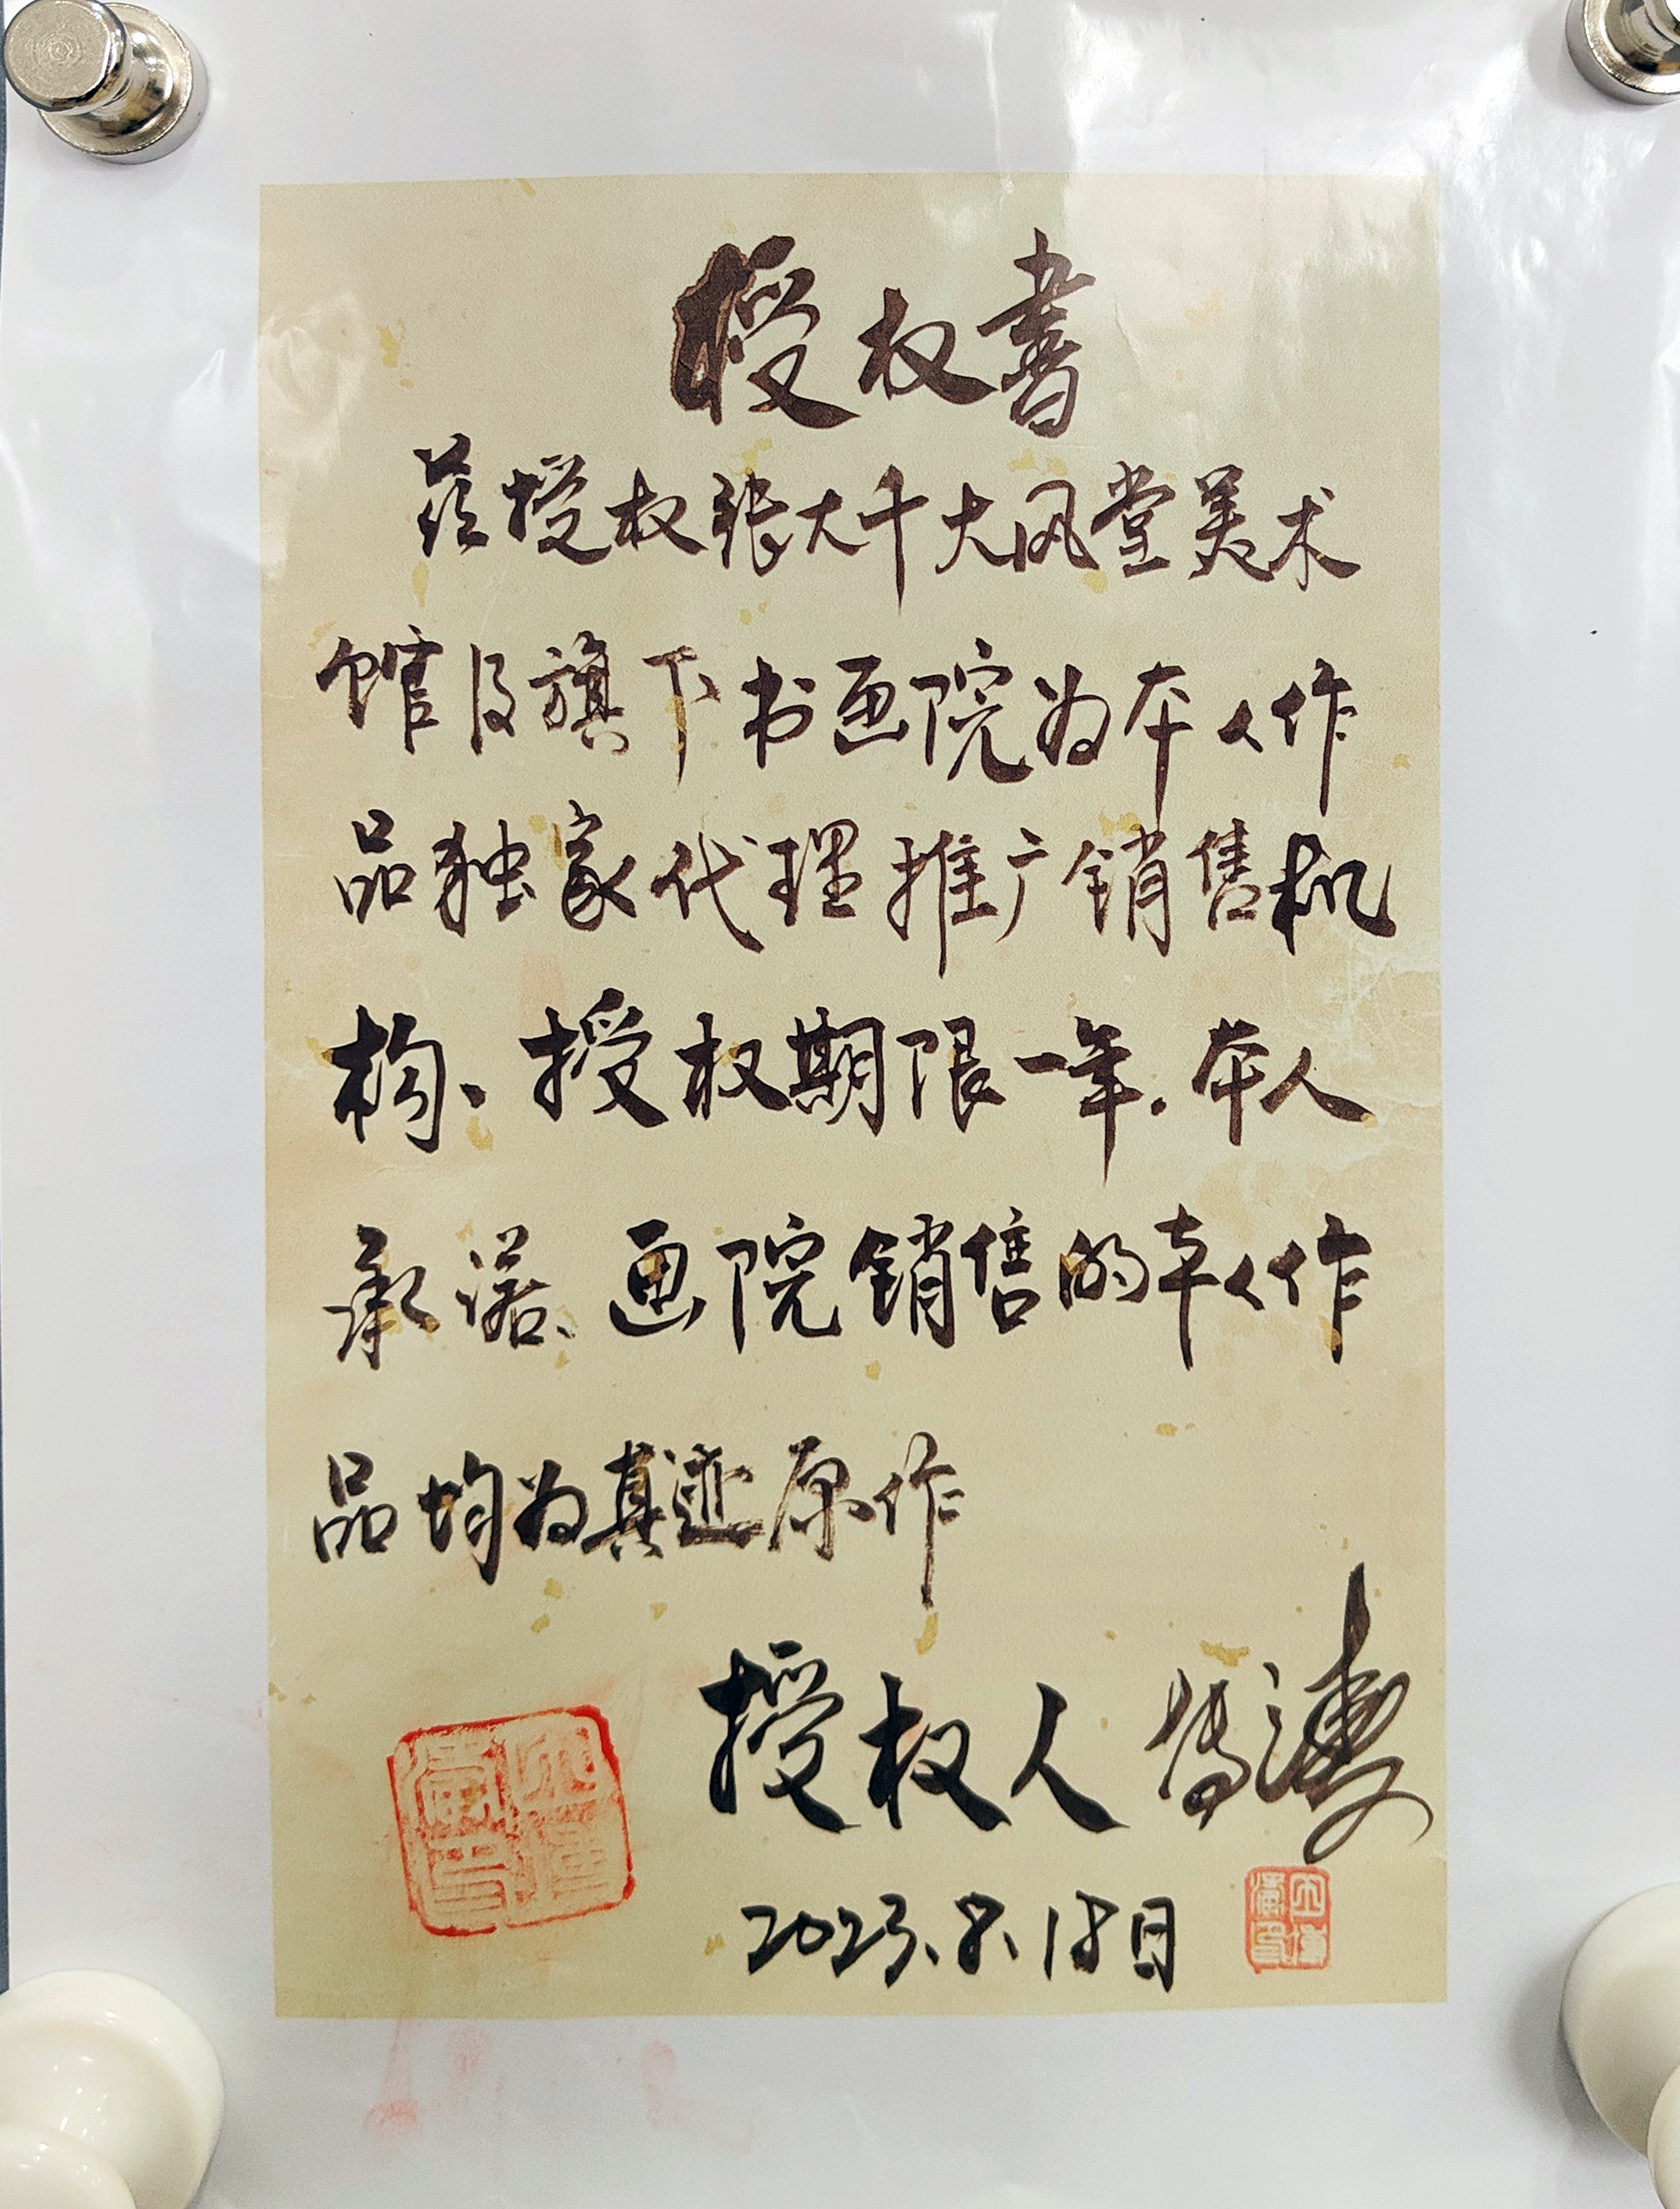 授权书
兹授权张大千大风堂美术
馆及旗下书画院为本人作
品独家代理推广销售机
构、授权期限一年.本人
承诺、画院销售的本人作
品均为真迹原作
授权人
2023.8.18日